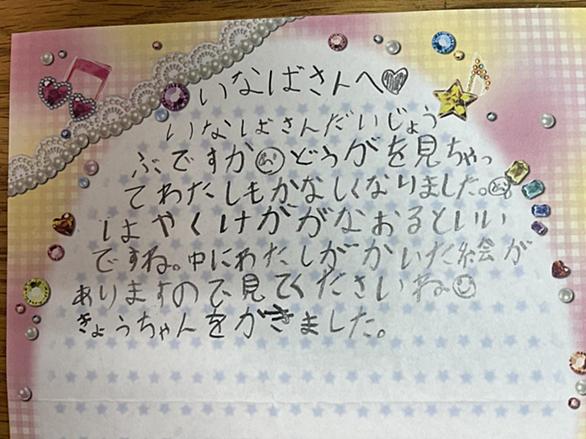 いなばさんへ♡
いなばさんだいじょう
ぶですか どうがを見ちゃっ
てわたしもかなしくなりました。
はやくけががなおるといい
ですね。中にわたしがかいた絵が
ありますので見てくださいね
きょうちゃんをかきました。